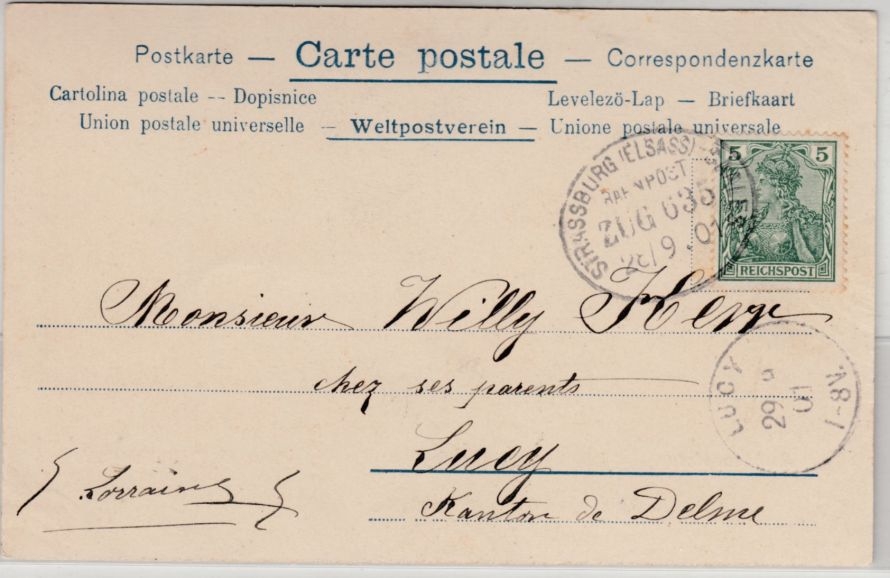 Postkarte — Carte postale — Correspondenzkarte
Cartolina postale -- Dopisnice Levelezö-Lap — Briefkaart
Union postale universelle — Weltpostverein — Unione postale universale
STRASSBURG (ELSASS)
BAHNPOST
ZUG 635
28/9 01
5 5
REICHSPOST
Monsieur Willy
chez ses parents
Lucy
Lorraine
Kanton de Delme
LUCY
29 9
01
7-8V